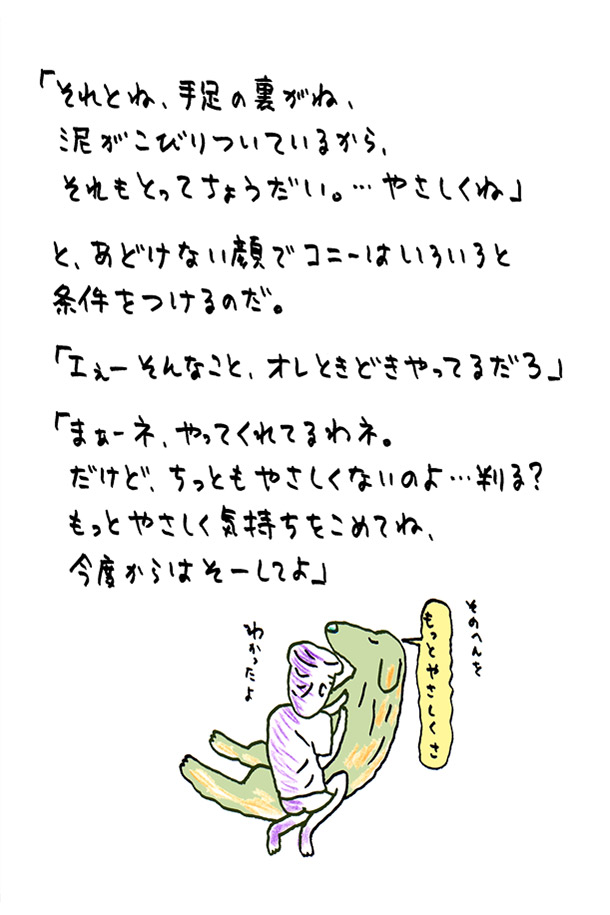 「それとね、手足の裏がね、
泥がこびりついているから、
それもとってちょうだい。…やさしくね」
と、あどけない顔でコニーはいろいろと
条件をつけるのだ。
「エぇーそんなこと、オレときどきやってるだろ」
「まぁーネ、やってくれてるわネ。
だけど、ちっともやさしくないのよ…判る？
もっとやさしく気持ちをこめてね、
今度からはそーしてよ」
そのへんを
もっとやさしくさ
わかったよ